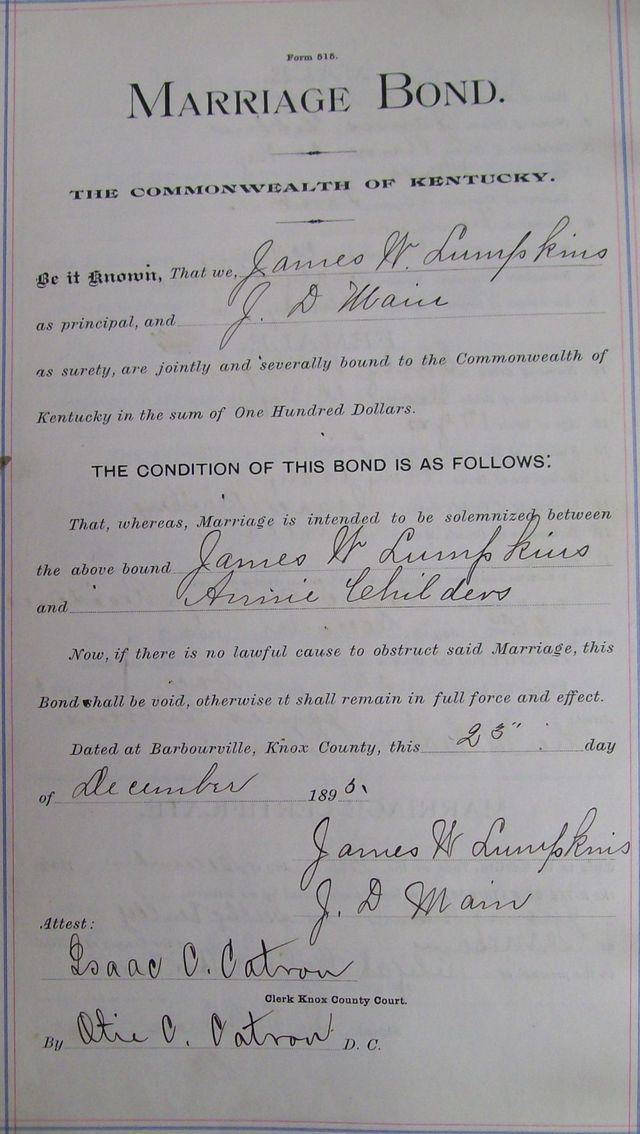 Form 515.
MARRIAGE BOND.
THE COMMONWEALTH OF KENTUCKY.
Be it Known, That we, James W. Lumpkins
as principal, and J. D Main
as surety, are jointly and severally bound to the Commonwealth of
Kentucky in the sum of One Hundred Dollars.
THE CONDITION OF THIS BOND IS AS FOLLOWS:
That, whereas, Marriage is intended to be solemnized between
the above bound James W Lumpkins
and Annie Childers
Now, if there is no lawful cause to obstruct said Marriage, this
Bond shall be void, otherwise it shall remain in full force and effect.
Dated at Barbourville, Knox County, this 23" day
of December 1895.
James W Lumpkins
J. D Main
Attest:
Isaac C. Catron
Clerk Knox County Court.
By Otie C. Catron D. C.